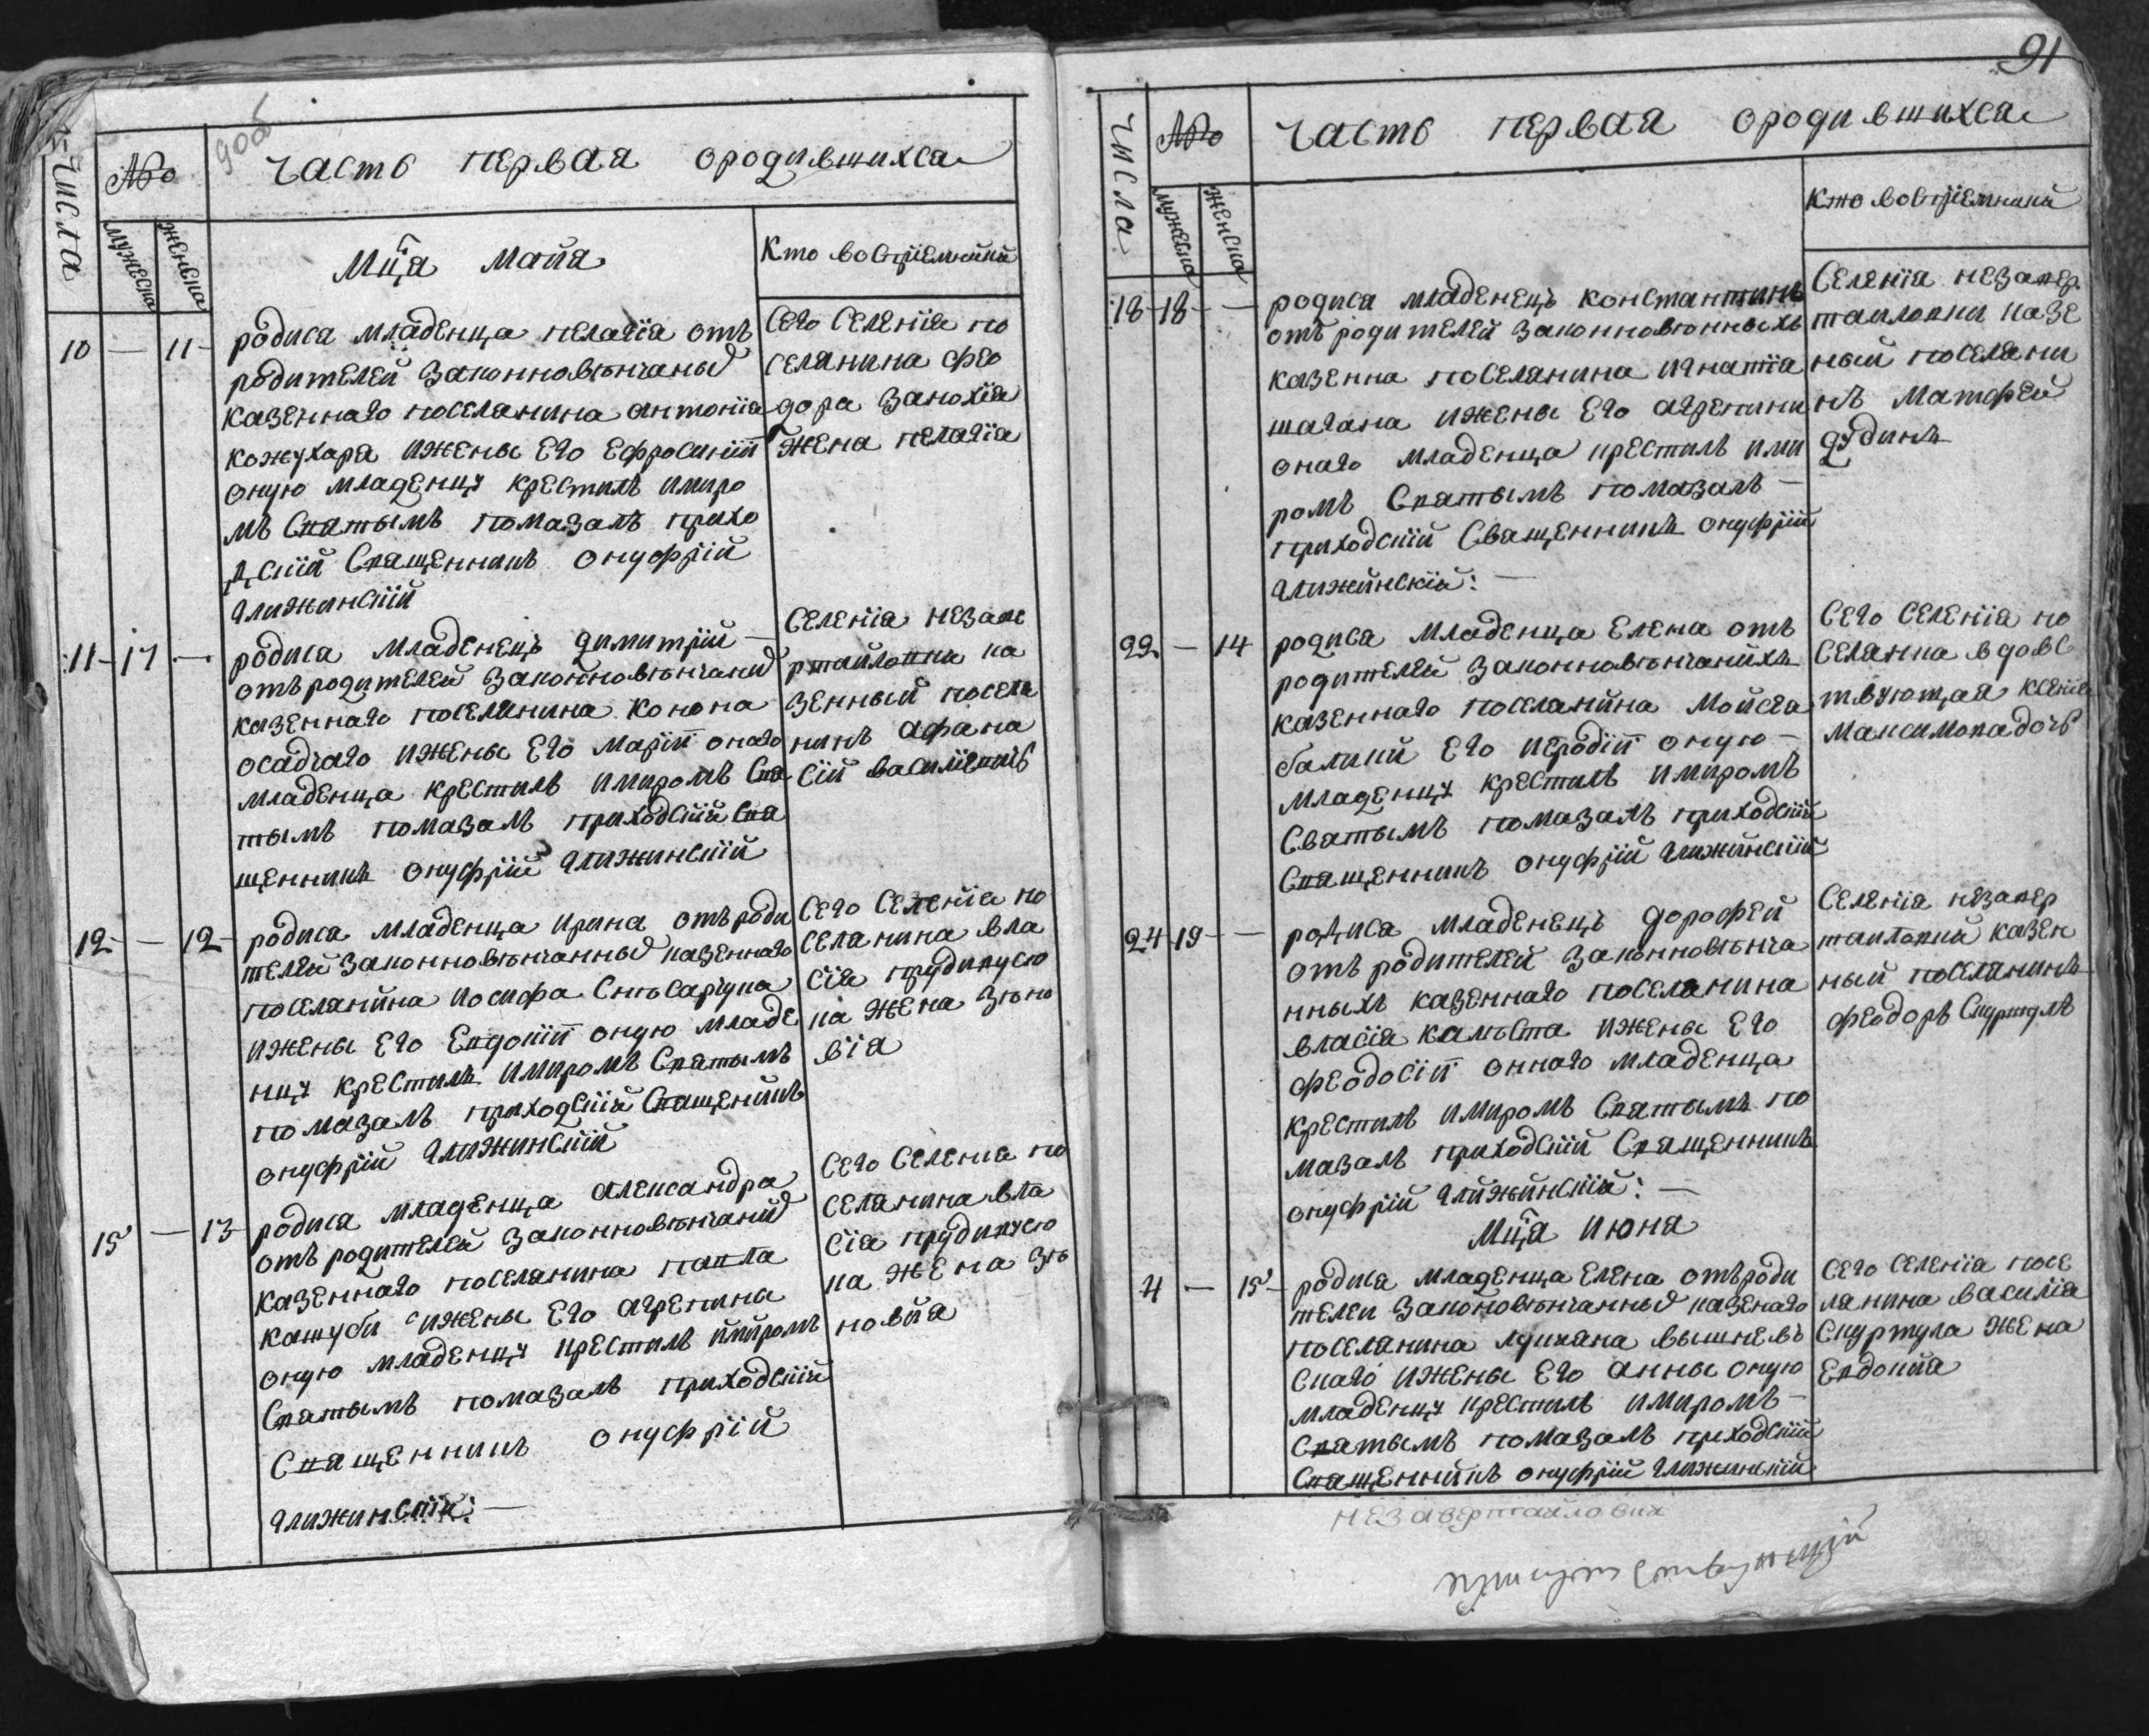 90об
Числа
№
мужеска
женска
Часть первая ородившихся
Мц̃а Маїя
Кто восприемники
10 — 11
родися младенца пелагїа отъ
родителей законновѣнчаных
казеннаго поселянина антонїя
кожухаря ижены его ефросинїи
оную младенцу крестилъ имиро
мъ святымъ помазалъ прихо
дскїй священникъ онуфрїй
глижинскїй
Сего селенїя по
селянина фео
дора
жена пелагїя
11 — 17 —
родися младенецъ димитрїй —
отъ родителей законновѣнчаных
казеннаго поселянина конона
осадчаго ижены его марїи онаго
младенца крестилъ имиромъ свя
тымъ помазалъ приходскїй свя
щенникъ онуфрїй глижинскїй
Селенїя незаве
ртайловки ка
зенный поселя
нинъ афана
сїй василїевичъ
12 — 12
родися младенца ирина отъ роди
телей законновѣнчанных казеннаго
поселянина иосифа снѣсарчука
ижены его евдокїи оную младе
нцу крестилъ имиромъ святымъ
помазалъ приходскїй священикъ
онуфрїй глижинскїй
Сего селенїя по
селянина вла
сїя прудивусо
ка жена зѣно
вїя
15 — 13
родися младенца александра
отъ родителей законновѣнчаных
казеннаго поселянина павла
кашуби ижены его агрепины
оную младенцу крестилъ имиромъ
святымъ помазалъ приходскїй
священникъ онуфрїй
глижинскїй: —
Сего селенїя по
селянина вла
сїя прудивусо
ка жена зѣ
новия
91
Числа
№
мужеска
женска
Часть первая ородившихся
Кто восприемники
18 — 18 —
родися младенецъ константинъ
отъ родителей законновѣнных
казенна поселянина игнатїя
шагана ижены его агрепини
онаго младенца крестилъ ими
ромъ святымъ помазалъ —
приходскїй священникъ онуфрїй
глижинскїй: —
Селенїя незавер
таиловки казе
ный поселяни
нъ матфей
дудинъ
22 — 14
родися младенца елена отъ
родителей законновѣнчаних
казеннаго поселянина мойсея
балики его иродїи оную —
младенцу крестилъ имиромъ
святымъ помазалъ приходскїй
священникъ онуфрїй глижинскїй
Сего селенїя по
селянка вдовс
твующая ксенїя
максимовадочь
24 19 —
родися младенецъ дорофей
отъ родителей законновѣнча
нныхъ казеннаго поселянина
власїя ижены его
феодосїи оннаго младенца
крестилъ имиромъ святымъ по
мазалъ приходскїй священникъ
онуфрїй глижинскїй: —
Селенїя незавер
таиловки казен
ный поселянинъ
феодоръ скуртулъ
Мц̃а июня
4 — 15
родися младенца елена отъ роди
телеи законовѣнчанных казенаго
поселянина лукияна вышневъ
скаго ижены его анны оную
младенцу крестилъ имиромъ —
святымъ помазалъ приходскїй
священникъ онуфрїй глижинскїй
Сего селенїя посе
лянина василїя
скуртула жена
евдокия
незавертайловки